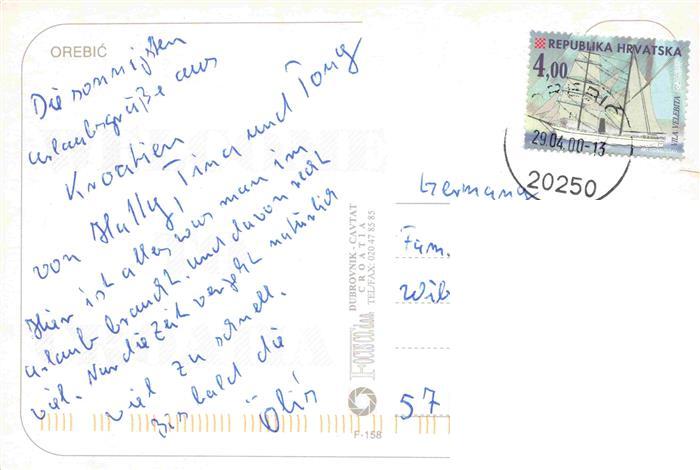 OREBIĆ
Die sonnigsten
Urlaubsgrüße aus
Kroatien
von Hally, Tina und Tony
Hier ist alles was man im
Urlaub braucht und davon recht
viel. Nur die Zeit vergeht natürlich
viel zu schnell.
Bis bald die
REPUBLIKA HRVATSKA
4,00
VILA VELEBITA
29.04.00-13
20250
Germana
Fam.
Wib
57
DUBROVNIK - CAVTAT
CROATIA
TEL/FAX: 020 47 85 85
F-158